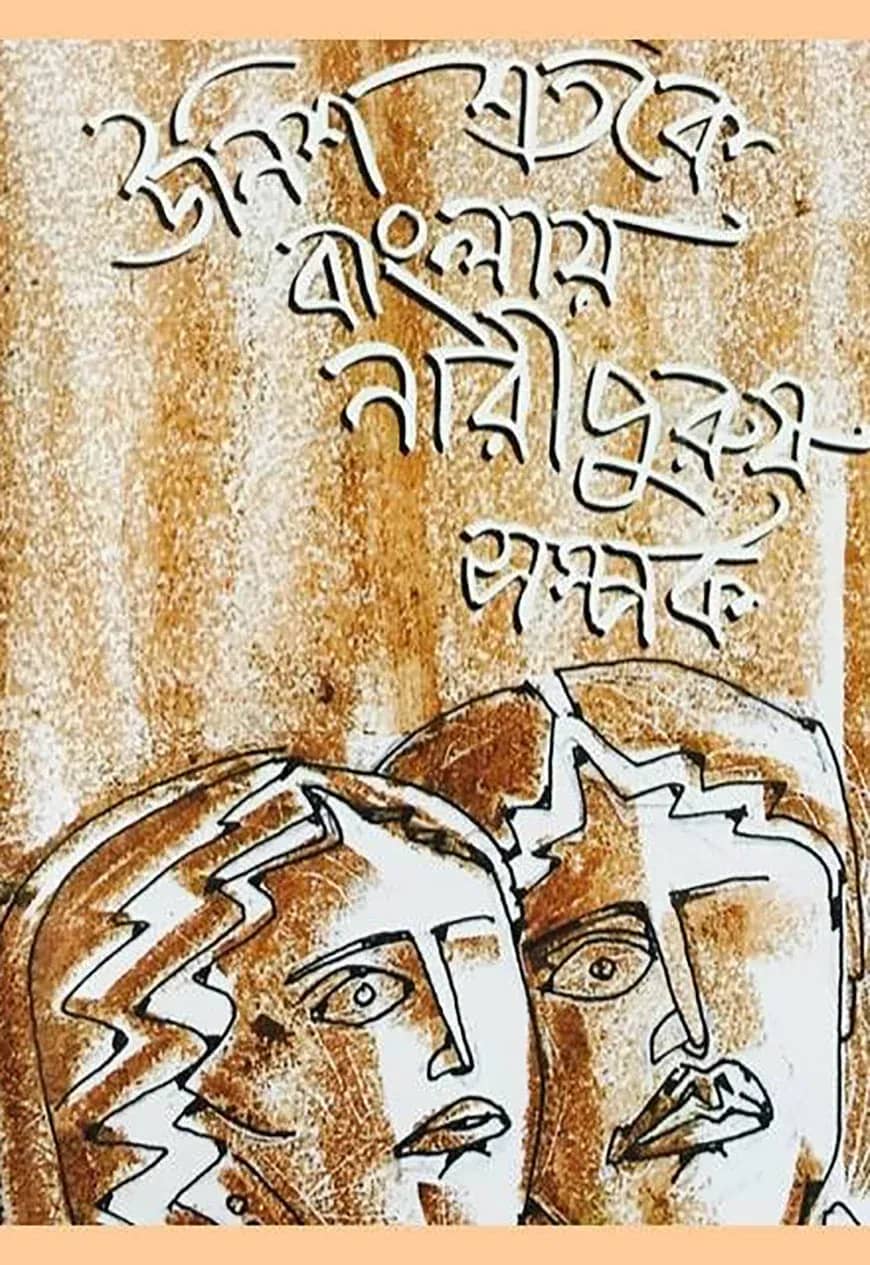 উনিশ শতকে
বাংলায়
নারীপুরুষ
সম্পর্ক